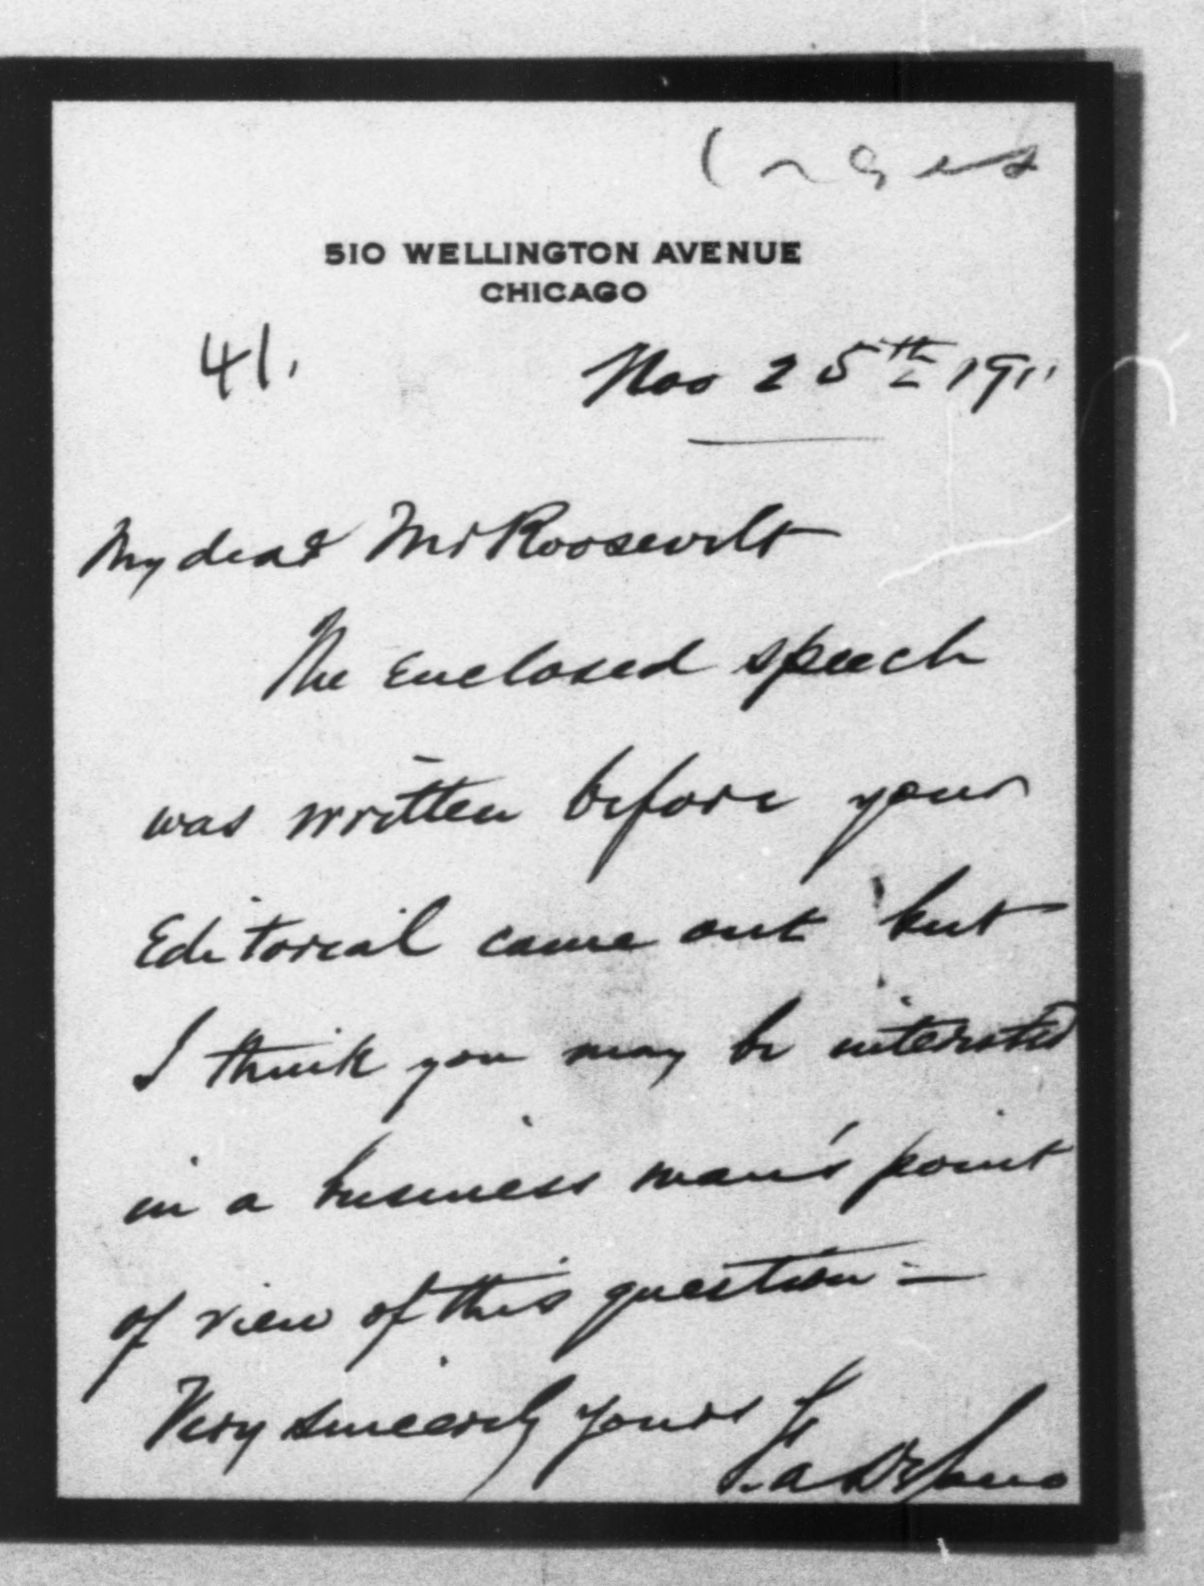 510 WELLINGTON AVENUE
CHICAGO
41.
Nov 25th 1911
My dear Mr Roosevelt
The enclosed speech
was written before your
Editorial came out but
I think you may be interested
in a business man's point
of view of this question —
Very sincerely yours